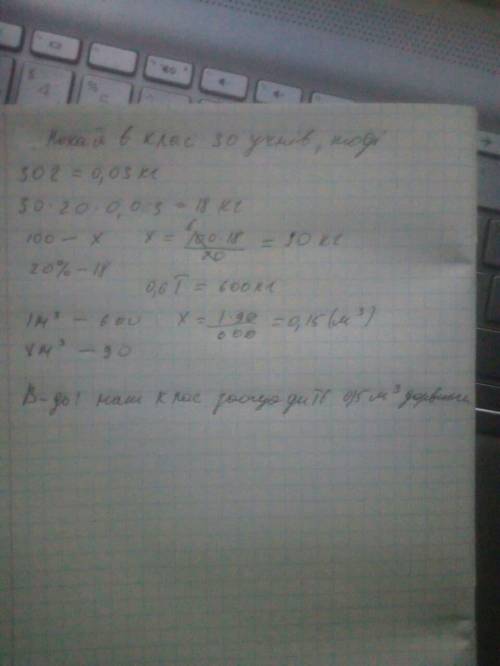 Нехай в клас 30 учнів, тоді
30г = 0,03 кг
30·20·0,03 = 18 кг
100 – x x = 100·18 / 20 = 90 кг
20% – 18
0,6 Т = 600 кг
1м³ – 600 x = 1·90 / 600 = 0,15 (м³)
xм³ – 90
В-дь: наш клас м³